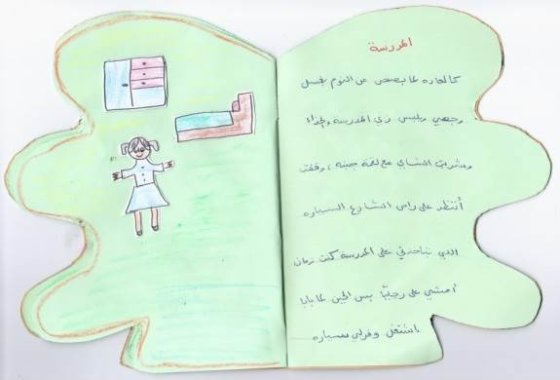 المدرسة
كالعاده لما بصحى من النوم بغسل
وجهي وبلبس زي المدرسه والحذاء
وبشرب الشاي مع لقمة جبنه ، وقفت
أنتظر على راس الشارع السياره
الي بتاخدني على المدرسة كنت زمان
أمشي على رجليّا بس الحين لما بابا
اشتغل وفرلي سياره